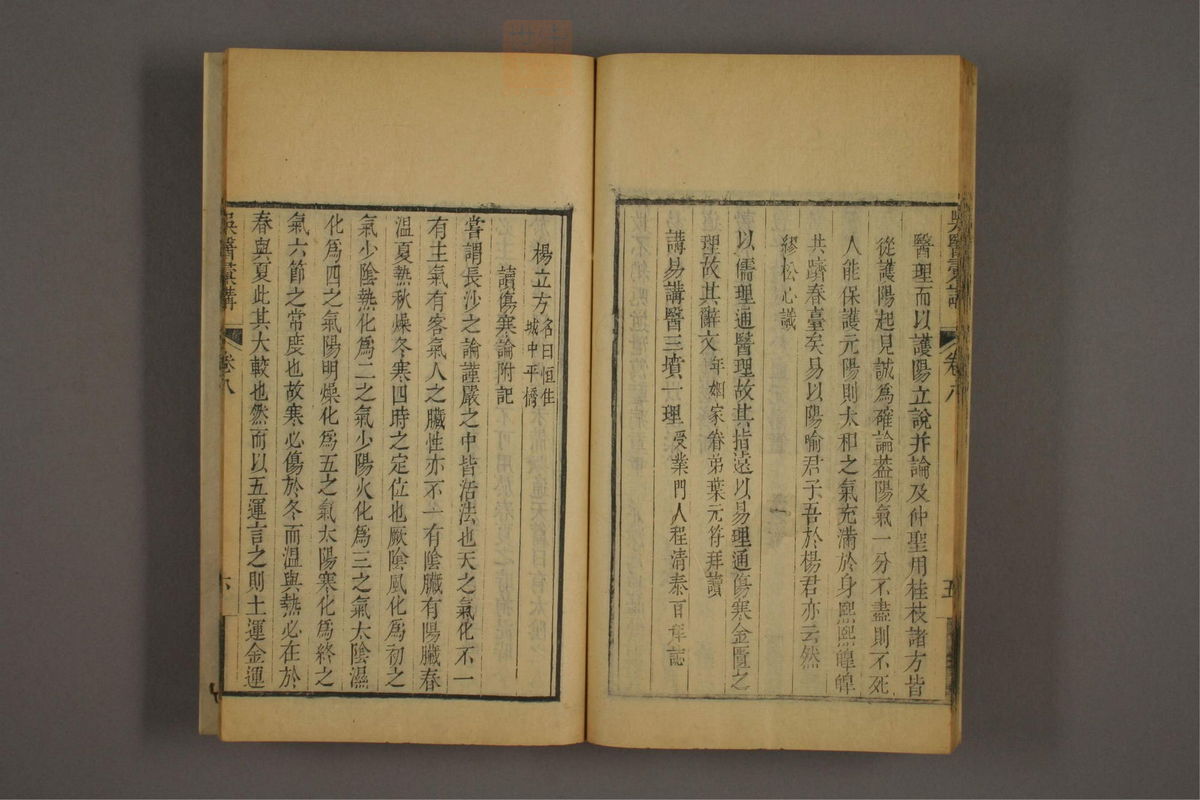 吳醫彙講
卷八
五
醫理而以護陽立說并論及仲聖用桂枝諸方皆
從護陽起見誠為確論葢陽氣一分不盡則不死
人能保護元陽則太和之氣充滿於身熙熙皥皥
共躋春臺矣易以陽喻君子吾於楊君亦云然
繆松心識
以儒理通醫理故其指遠以易理通傷寒金匱之
理故其辭文年姻家眷弟葉元符拜讀
講易講醫三墳一理受業門人程清泰百拜誌
楊立方名曰恒住
城中平橋
讀傷寒論附記
嘗謂長沙之論謹嚴之中皆活法也天之氣化不一
有主氣有客氣人之臟性亦不一有陰臟有陽臟春
温夏熱秋燥冬寒四時之定位也厥陰風化為初之
氣少陰熱化為二之氣少陽火化為三之氣太陰濕
化為四之氣陽明燥化為五之氣太陽寒化為終之
氣六節之常度也故寒必傷於冬而温與熱必在於
春與夏此其大較也然而以五運言之則土運金運
吳醫彙講
卷八
六